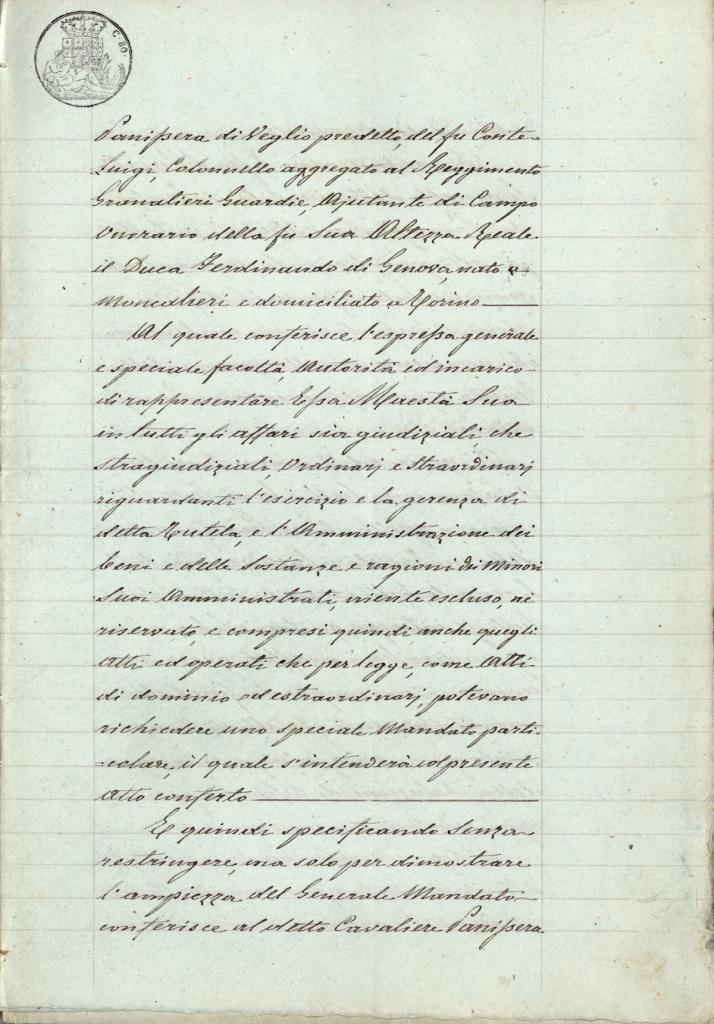 C. 80
Panissera di Veglio predetto, del fu Conte
Luigi, Colonnello aggregato al Reggimento
Granatieri Guardie, Ajutante di Campo
Onorario della fu Sua Altezza Reale
il Duca Ferdinando di Genova, nato a
Moncalieri e domiciliato a Torino
Al quale conferisce l'espressa generale
e speciale facoltà, Autorità ed incarico
di rappresentare Essa Maestà Sua
in tutti gli affari sia giudiziali, che
stragiudiziali, Ordinarj e Straordinarj
riguardanti l'esercizio e la gerenza di
detta Tutela, e l'Amministrazione dei
beni e delle Sostanze e ragioni dei Minori
Suoi Amministrati, niente escluso, nè
riservato, e compresi quindi anche quegli
Atti ed operati che per legge, come Atti
di dominio od estraordinarj, potevano
richiedere uno speciale Mandato parti-
=colare, il quale s'intenderà col presente
Atto conferto
E quindi specificando senza
restringere, ma solo per dimostrare
l'ampiezza del Generale Mandato
conferisce al detto Cavaliere Panissera